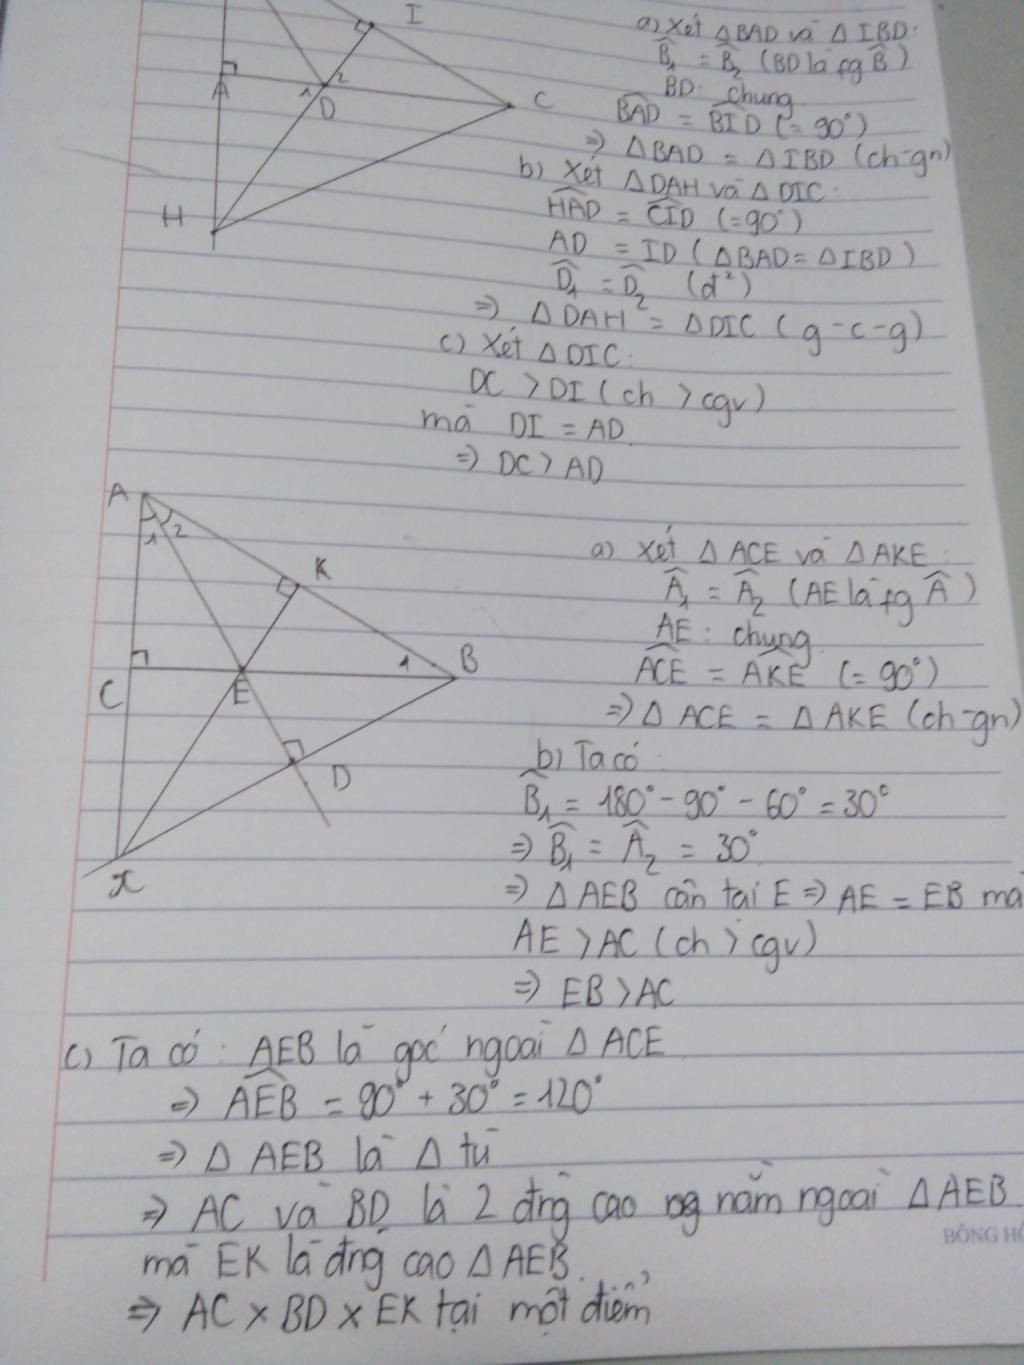 I
A
1
2
D
C
H
a) Xét ΔBAD và ΔIBD:
B̂₁ = B̂₂ (BD là fg B̂)
BD: chung
BAD̂ = BID̂ (= 90°)
⇒ ΔBAD = ΔIBD (ch-gn)
b) Xét ΔDAH và ΔDIC:
HAD̂ = CID̂ (=90°)
AD = ID (ΔBAD = ΔIBD)
D̂₁ = D̂₂ (đ²)
⇒ ΔDAH = ΔDIC (g-c-g)
c) Xét ΔDIC:
DC > DI (ch > cgv)
mà DI = AD
⇒ DC > AD
A
1
2
K
1
B
C
E
D
x
a) Xét ΔACE và ΔAKE:
Â₁ = Â₂ (AE là fg Â)
AE: chung
ACÊ = AKÊ (= 90°)
⇒ ΔACE = ΔAKE (ch-gn)
b) Ta có:
B̂₁ = 180° - 90° - 60° = 30°
⇒ B̂₁ = Â₂ = 30°
⇒ ΔAEB cân tại E ⇒ AE = EB mà
AE > AC (ch > cgv)
⇒ EB > AC
c) Ta có: AEB là góc ngoài ΔACE
⇒ AEB̂ = 90° + 30° = 120°
⇒ ΔAEB là Δ tù
⇒ AC và BD là 2 đng cao nằm ngoài ΔAEB
mà EK là đng cao ΔAEB.
⇒ AC x BD x EK tại một điểm
BÔNG